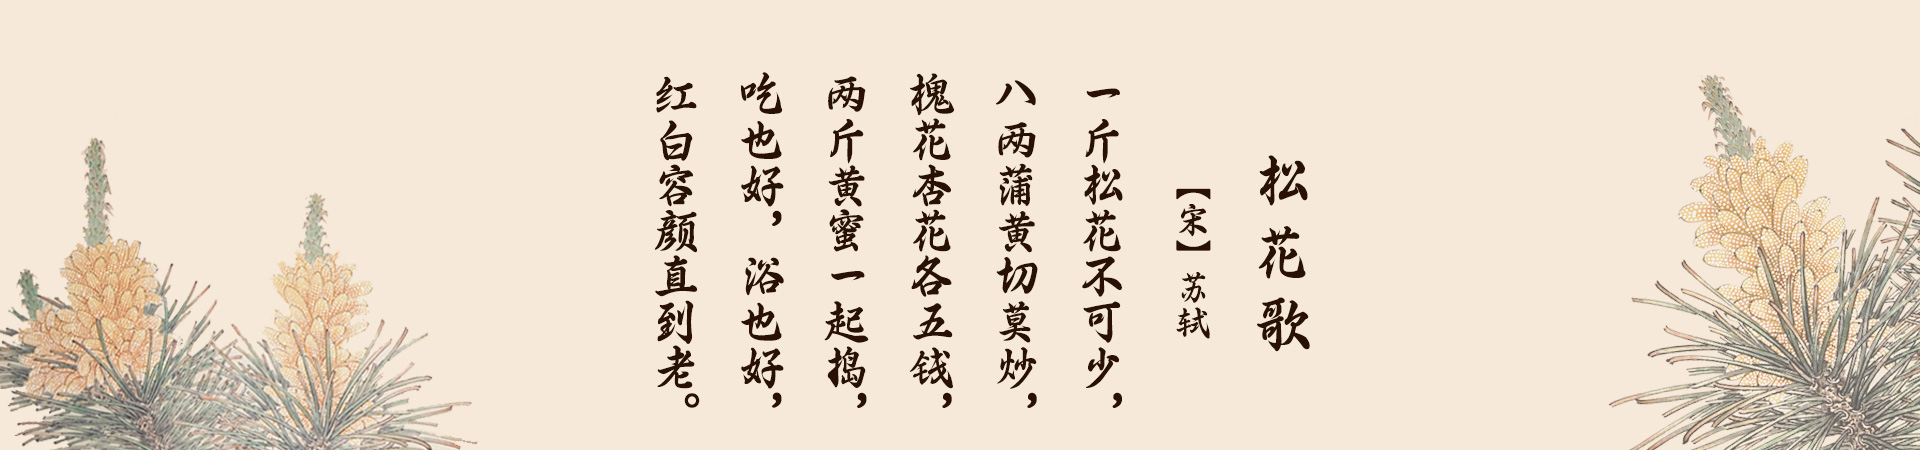 松花歌
【宋】苏轼
一斤松花不可少，
八两蒲黄切莫炒，
槐花杏花各五钱，
两斤黄蜜一起捣，
吃也好，浴也好，
红白容颜直到老。